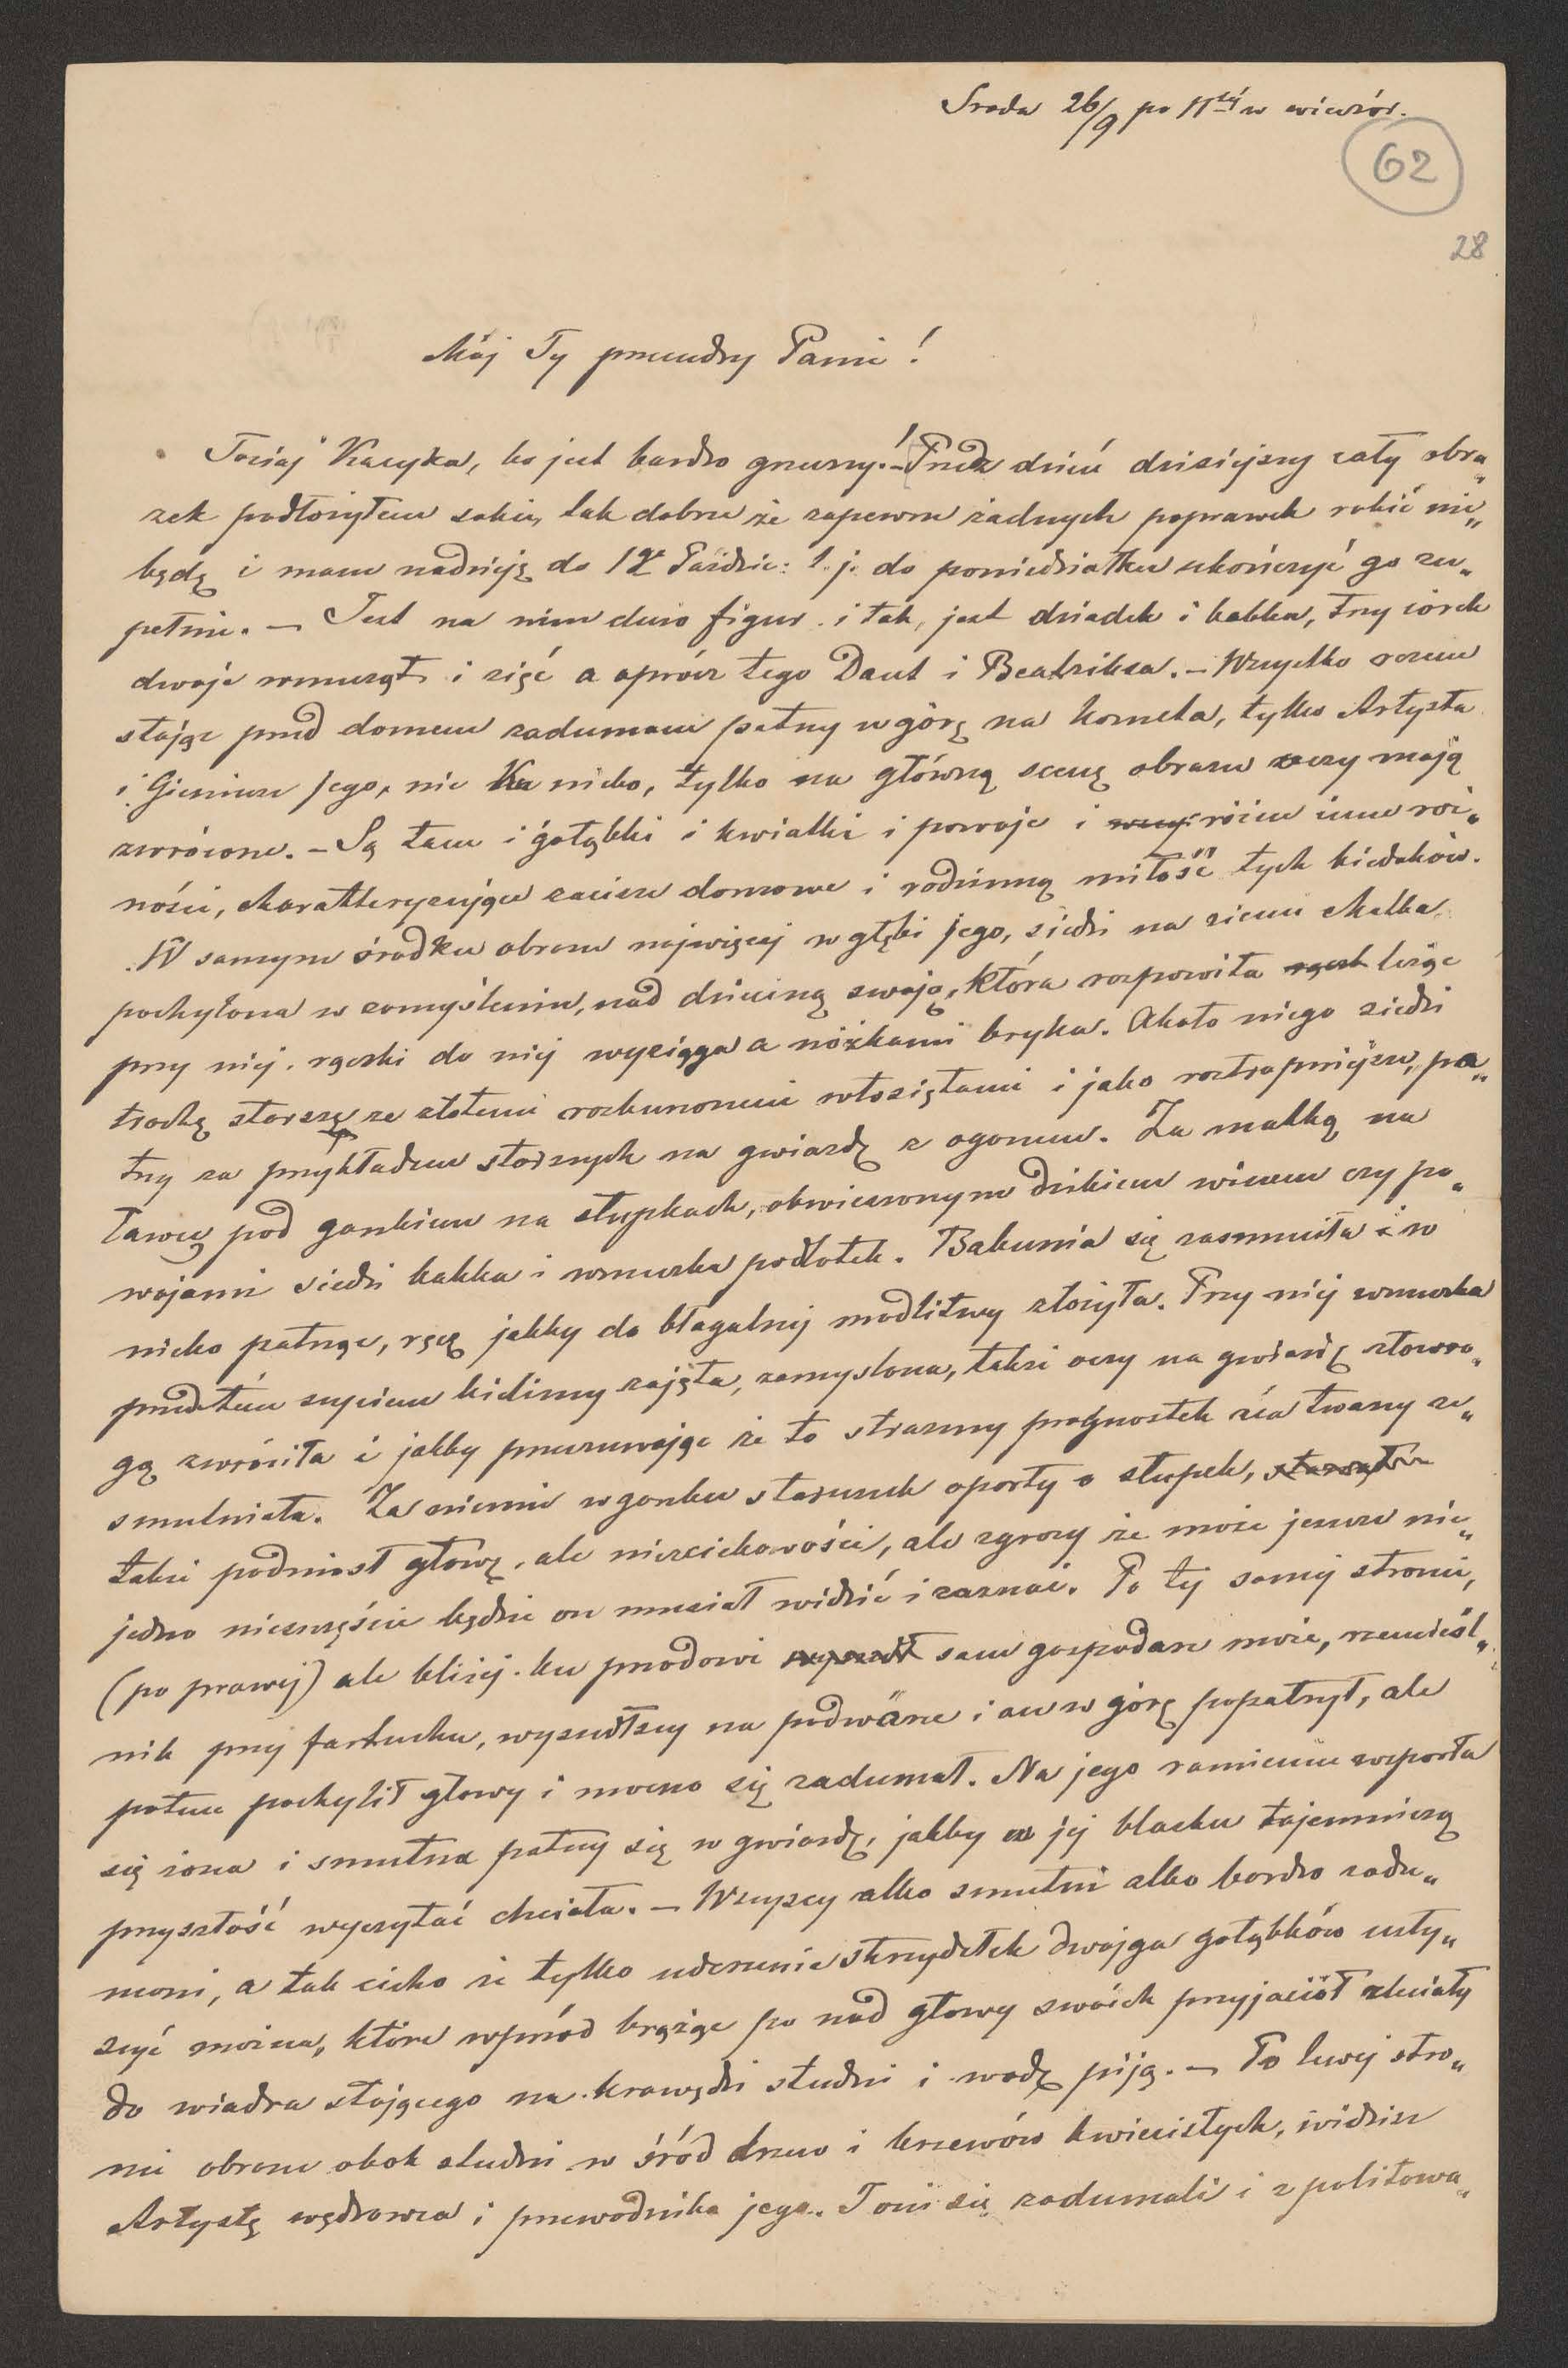 Sroda 26/9 po 11téj w wieczór.
62
28
Mój Ty przemądry Panie!
Tociaj Kacyka, bo jest bardzo grzeczny!– Przez dzień dzisiejszy cały obra„
zek podłożyłem sobie, tak dobrze że zapewne żadnych poprawek robić nie„
będę i mam nadzieję do 1go Paździe: t. j. do poniedziałku ukończyć go zu„
pełnie. – Jest na nim dużo figur i tak, jest dziadek i babka, trzy córek
dwoje wnucząt i zięć a oprócz tego Dant i Beatriksa. – Wszystko razem
stojąc przed domem zadumani patrzy w górę na kometa, tylko Artysta
i Gieniusz jego, nie na niebo, tylko na główną scenę obrazu oczy mają
zwrócone. – Są tam i gołąbki i kwiatki i powoje i różne inne roś„
ności, charakteryzujące zacisze domowe i rodzinną miłość tych biedaków.
W samym środku obrazu najwięcej w głębi jego, siedzi na ziemi Matka
pochylona w zamyśleniu, nad dzieciną swoją, która rozpowita leżąc
przy niej rączki do niej wyciąga a nóżkami bryka. Około niego siedzi
trochę starsze ze złotemi rozburzonemi włosiętami i jako roztropniejsze, pa„
trzy za przykładem starszych na gwiazdę z ogonem. Za matką na
ławce pod gankiem na słupkach, obwieszonym dzikiem winem czy po„
wojami siedzi babka i wnuczka podlotek. Babunia się zasmuciła i w
niebo patrząc, ręce jakby do błagalnej modlitwy złożyła. Przy niej wnuczka
przedtém szyciem bielizny zajęta, zamyślona, także oczy na gwiazdę złowro„
gą zwróciła i jakby przeczuwając że to straszny prognostyk zła twarzy ze„
smutniała. Za niemi w ganku staruszek oparty o słupek,
także podniósł głowę, ale nie z ciekawości, ale zgrozy że może jeszcze nie„
jedno nieszczęście będzie on musiał widzić i zaznać. Po tej samej stronie,
(po prawej) ale bliżej ku przodowi sam gospodarz może, rzemieśl„
nik przy fartuchu, wyszedłszy na podwórze i on w górę popatrzył, ale
potem pochylił głowy i mocno się zadumał. Na jego ramieniu wsparła
się żona i smutna patrzy się w gwiazdę, jakby w jej blasku tajemniczą
przyszłość wyczytać chciała. – Wszyscy albo smutni albo bardzo zadu„
mani, a tak cicho że tylko uderzenie skrzydełek dwojga gołąbków usły„
szyć można, które wprzód krążąc po nad głowy swoich przyjaciół zleciały
do wiadra stojącego na krawędzi studni i wodę piją. – Po lewej stro„
nie obrazu obok studni w śród drzew i krzewów kwiecistych, widzisz
Artystę wędrowca i przewodnika jego. I oni się zadumali i z politowa„